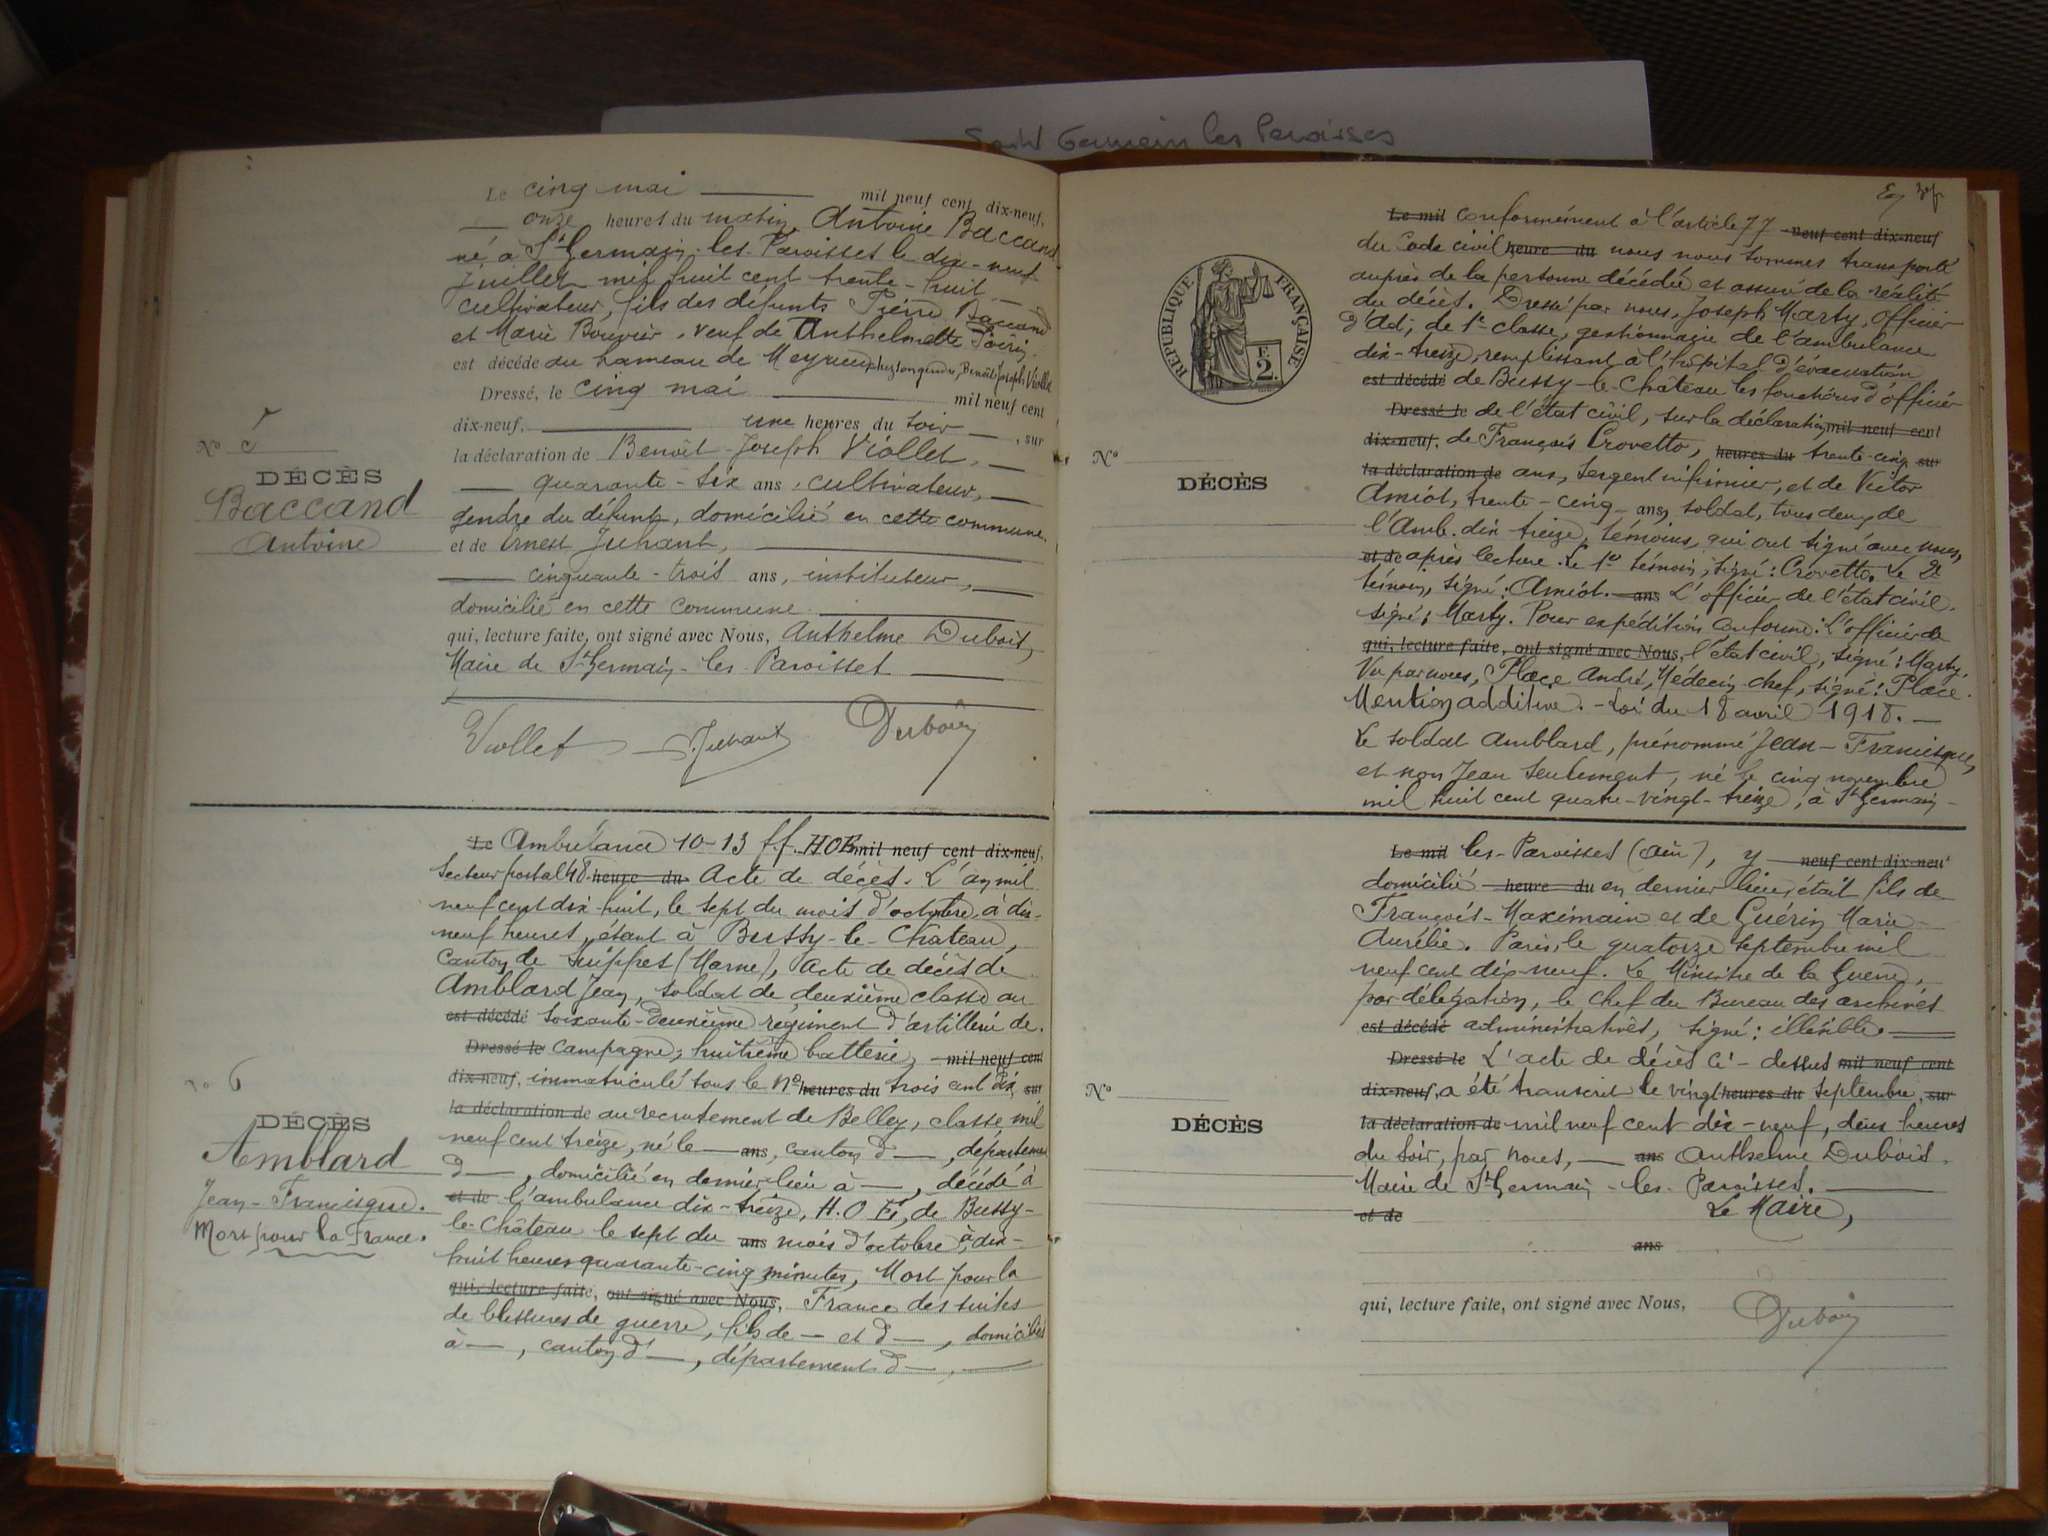 Saint Germain les Paroisses
Le cinq mai mil neuf cent dix-neuf,
onze heures du matin, Antoine Baccand
né à St Germain-les-Paroisses le dix-neuf
Juillet mil huit cent trente-huit
cultivateur, fils des défunts Pierre Baccand
et Marie Bouvier, veuf de Anthelmette
est décédé au hameau de chez son gendre, Benoît Joseph Viollet
Dressé, le cinq mai mil neuf cent
dix-neuf, une heures du soir, sur
la déclaration de Benoît-Joseph Viollet,
quarante-six ans, cultivateur,
gendre du défunt, domicilié en cette commune
et de Ernest Juhant,
cinquante-trois ans, instituteur,
domicilié en cette commune
qui, lecture faite, ont signé avec Nous, Anthelme Dubois,
Maire de St Germain-les-Paroisses
Viollet Juhant Dubois
No 5
DÉCÈS
Baccand
Antoine
Le Ambulance 10-13 ff. HOE mil neuf cent dix-neuf,
Secteur postal 48. heure du Acte de décès. L'an mil
neuf cent dix-huit, le sept du mois d'octobre, à dix-
neuf heures, étant à Bussy-le-Château,
Canton de Suippes (Marne), Acte de décès de
Amblard Jean, soldat de deuxième classe au
est décédé soixante-deuxième régiment d'artillerie de
Dressé le campagne, huitième batterie, mil neuf cent
dix-neuf, immatriculé sous le No heures du trois cent dix, sur
la déclaration de au recrutement de Belley, classe mil
neuf cent treize, né le — ans, canton d —, département
d —, domicilié en dernier lieu à —, décédé à
et de l'ambulance dix-treize, H.O.E., de Bussy-
le-Château le sept du ans mois d'octobre à dix-
huit heures quarante-cinq minutes, Mort pour la
qui, lecture faite, ont signé avec Nous, France des suites
de blessures de guerre, fils de — et d —, domiciliés
à —, canton d' —, département d —,
No 6
DÉCÈS
Amblard
Jean-Francisque.
Mort pour la France.
RÉPUBLIQUE FRANÇAISE
F.
2.
No
DÉCÈS
Le mil conformément à l'article 77 neuf cent dix-neuf
du Code civil heure du nous nous sommes transporté
auprès de la personne décédée et assuré de la réalité
du décès. Dressé par nous, Joseph Marty, Officier
d'Ad; de 1e classe, gestionnaire de l'ambulance
dix-treize, remplissant à l'hôpital d'évacuation
est décédé de Bussy-le-Château les fonctions d'officier
Dressé le de l'état civil, sur la déclaration mil neuf cent
dix-neuf, de François Crovetto, heures du trente-cinq sur
la déclaration de ans, sergent infirmier, et de Victor
Amiot, trente-cinq ans, soldat, tous deux de
l'Amb. dix treize, témoins, qui ont signé avec nous,
et de après lecture. Le 1er témoin, signé: Crovetto. Le 2e
témoin, signé: Amiot. ans L'officier de l'état civil.
signé; Marty. Pour expédition conforme: L'officier de
qui, lecture faite, ont signé avec Nous, l'état civil, signé: Marty,
Vu par nous, Place André, Médecin chef, signé: Place.
Mention additive. - Loi du 18 avril 1918. —
Le soldat Amblard, prénommé Jean-Francisque,
et non Jean seulement, né le cinq novembre
mil huit cent quatre-vingt-treize, à St Germain-
No
DÉCÈS
Le mil les-Paroisses (Ain), y neuf cent dix-neuf
domicilié heure du en dernier lieu, était fils de
François-Maximain et de Guérin Marie-
Aurélie. Paris, le quatorze septembre mil
neuf cent dix-neuf. Le Ministre de la Guerre,
par délégation, le Chef du Bureau des archives
est décédé administratives, signé: illisible.
Dressé le L'acte de décès ci-dessus mil neuf cent
dix-neuf, a été transcrit le vingt heures du septembre, sur
la déclaration de mil neuf cent dix-neuf, deux heures
du soir, par nous, — ans Anthelme Dubois,
Maire de St Germain-les-Paroisses.
et de Le Maire,
ans
qui, lecture faite, ont signé avec Nous, Dubois